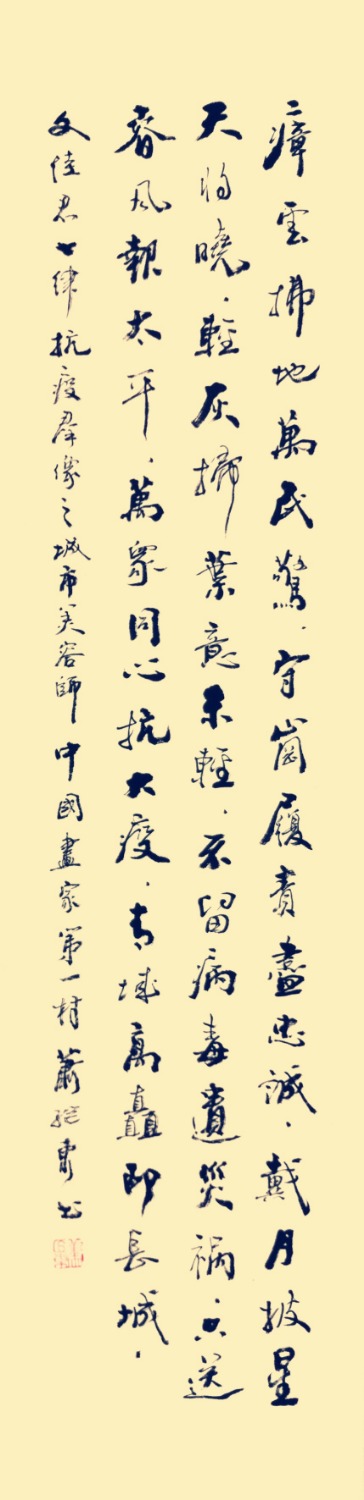 瘴雲拂地萬民驚，守崗履責盡忠誠，戴月披星
天將曉，輕灰掃葉意未輕，不留病毒遺災禍，只送
春風報太平，萬眾同心抗大疫，青城高矗即長城，
文佳君七律抗疫群像之城市美容師 中國畫家第一村 蕭 書